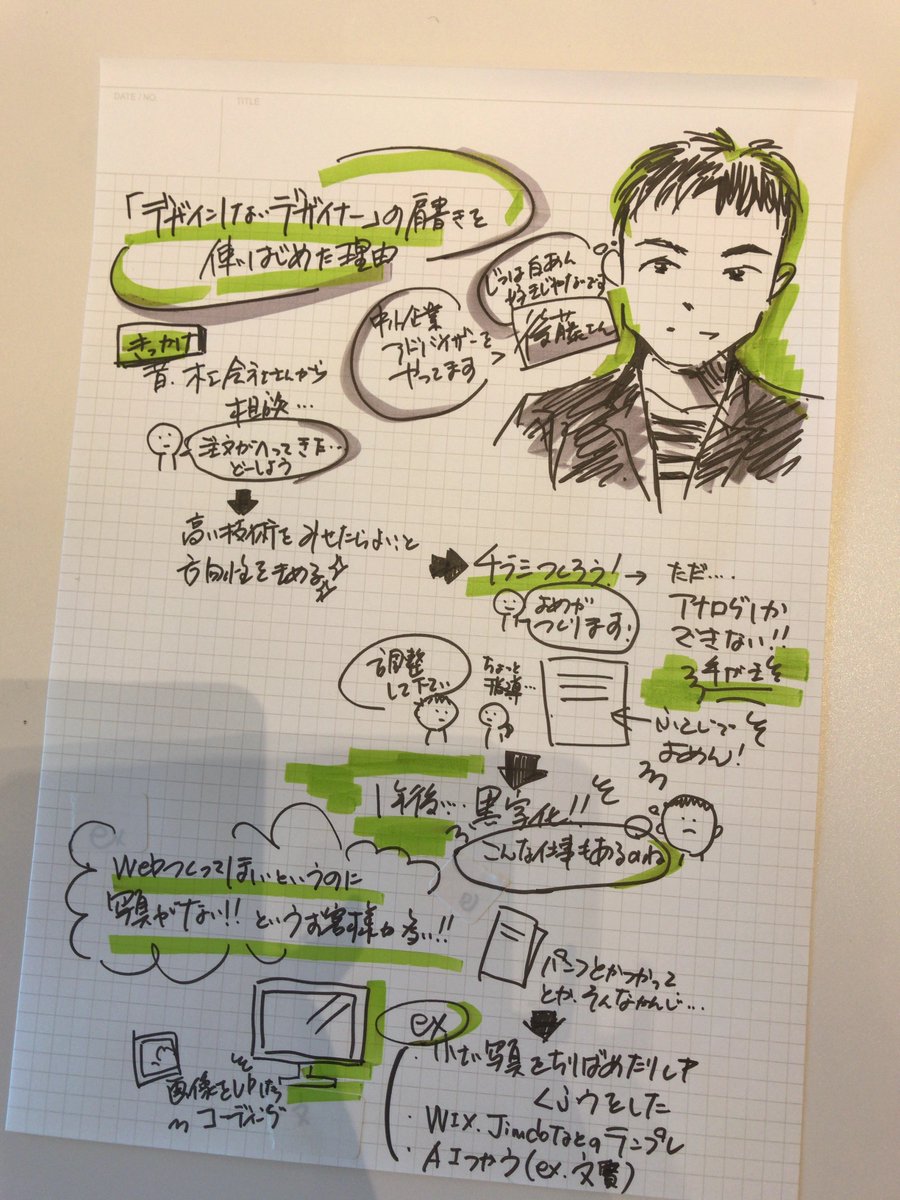 DATE / NO.
TITLE
「デザインしないデザイナー」の肩書きを
使いはじめた理由
じつは白あん
好きじゃないです
後藤さん
中小企業
アドバイザーを
やってます
きっかけ
昔、木工会社さんから
相談…
注文がへってきた…
どーしよう
高い技術をみせたらよいと
方向性をきめる
チラシつくろう!
よめが
つくります!
ただ….
アナログしか
できない!!
手がきを
調整
して下さい
ちょっと
指導…
1年後…. 黒字化!!
こんな仕事もあるのね
Webつくってほしいというのに
写真がない!! というお客様が多い!!
パンフとかつかって
とか、そんなかんじ…
画像をUPしたら
コーディング
ex
・小さい写真をちりばめたりしや
くふうをした
・WIX. Jimdoなどのテンプレ
・AIつかう(ex.文賢)